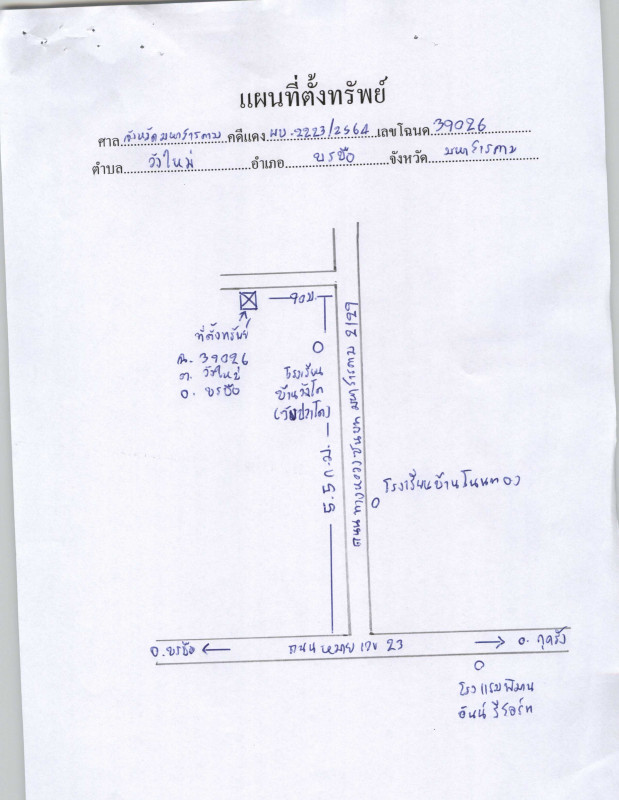 แผนที่ตั้งทรัพย์
ศาล จังหวัดมหาสารคาม คดีแดง ผบ.2223/2564 เลขโฉนด 39026
ตำบล วังใหม่ อำเภอ บรบือ จังหวัด มหาสารคาม
90ม.
ที่ตั้งทรัพย์
ฉ. 39026
ต. วังใหม่
อ. บรบือ
โรงเรียน
บ้านวังโด
5.5 ก.ม.
ถนน ทางหลวงชนบท มหาสารคาม
โรงเรียนบ้านโนนทอง
อ.บรบือ
ถนน หมายเลข 23
อ. กุดรัง
โรงแรมพิมาน
อินน์ รีสอร์ท